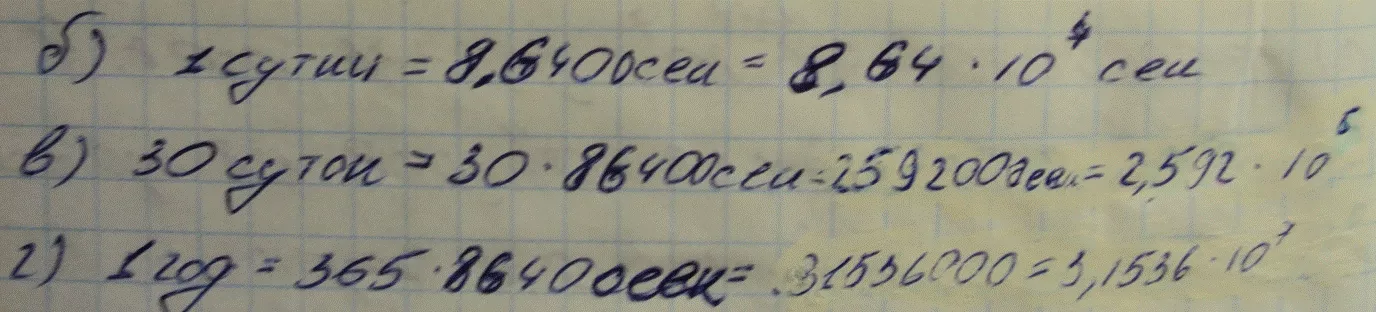 б) 1 сутки = 8,6400 сек = 8,64 · 10⁴ сек
в) 30 суток = 30 · 86400 сек = 2592000 сек = 2,592 · 10⁶
г) 1 год = 365 · 86400 сек = 31536000 = 3,1536 · 10⁷